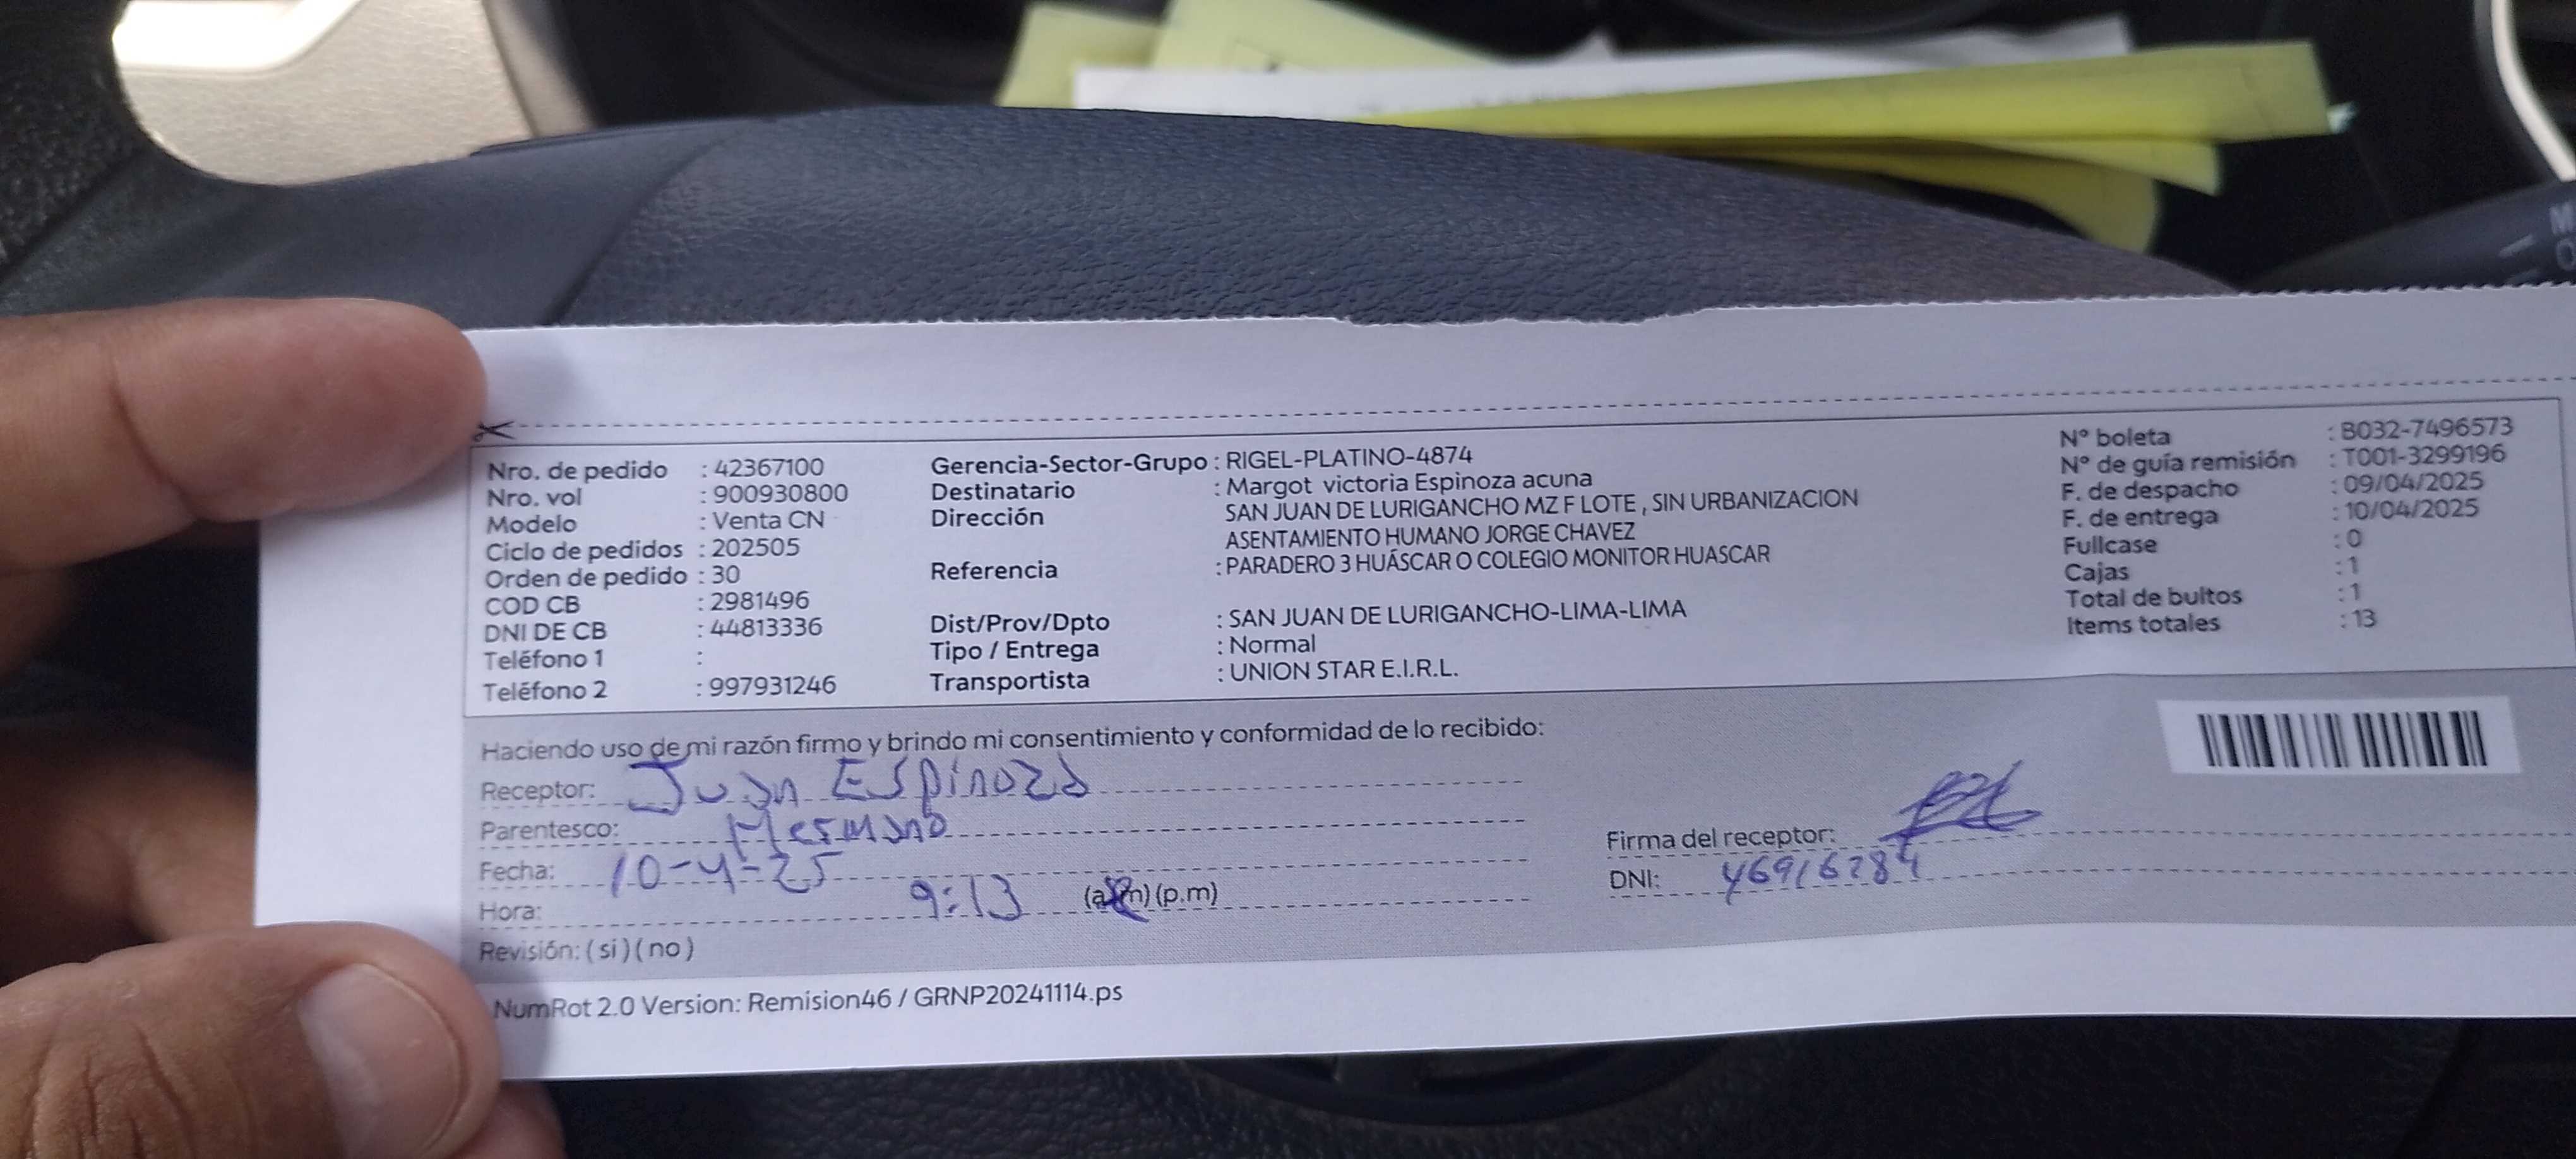 Nro. de pedido : 42367100
Nro. vol : 900930800
Modelo : Venta CN
Ciclo de pedidos : 202505
Orden de pedido : 30
COD CB : 2981496
DNI DE CB : 44813336
Teléfono 1 :
Teléfono 2 : 997931246
Gerencia-Sector-Grupo : RIGEL-PLATINO-4874
Destinatario : Margot victoria Espinoza acuna
Dirección SAN JUAN DE LURIGANCHO MZ F LOTE , SIN URBANIZACION
ASENTAMIENTO HUMANO JORGE CHAVEZ
Referencia : PARADERO 3 HUÁSCAR O COLEGIO MONITOR HUASCAR
Dist/Prov/Dpto : SAN JUAN DE LURIGANCHO-LIMA-LIMA
Tipo / Entrega : Normal
Transportista : UNION STAR E.I.R.L.
N° boleta : B032-7496573
N° de guía remisión : T001-3299196
F. de despacho : 09/04/2025
F. de entrega : 10/04/2025
Fullcase : 0
Cajas : 1
Total de bultos : 1
Items totales : 13
Haciendo uso de mi razón firmo y brindo mi consentimiento y conformidad de lo recibido:
Receptor: Juan Espinoza
Parentesco: Hermano
Fecha: 10-4-25
Hora: 9:13 (a.m) (p.m)
Revisión: ( si ) ( no )
Firma del receptor:
DNI: 46916284
NumRot 2.0 Version: Remision46 / GRNP20241114.ps